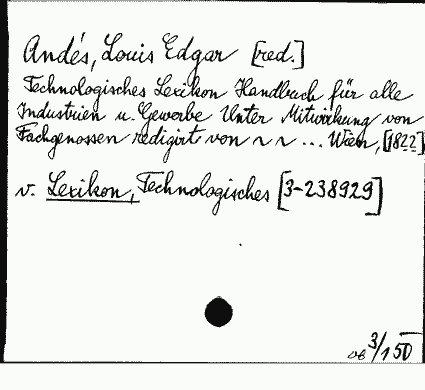 Andés, Louis Edgar [red.]
Technologisches Lexikon Handbuch für alle
Industrien u. Gewerbe Unter Mitwirkung von
Fachgenossen redigirt von ~ ~ ... Wien, [1822]
v. Lexikon, Technologisches [3-238929]
3/150